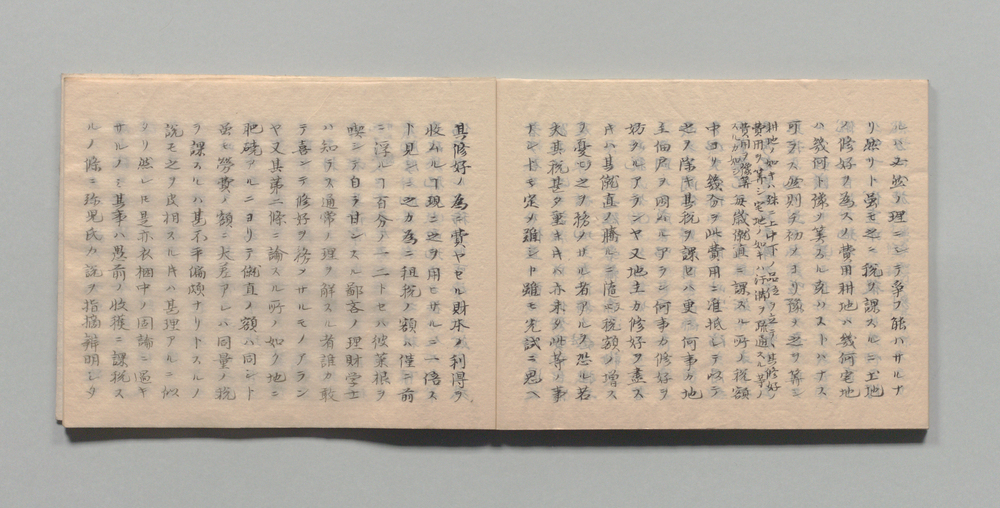 ルモ亦並ノ理ニシテ争フ能ハサルナ
リ然リト雖モ之ニ税ヲ課スルニ土地
ノ修好ヲ為スノ費用耕地ハ幾何宅地
ハ幾何ト豫メ算スル克ハストハナス
可ラス然則チ初メヨリ豫メ之ヲ算シ
耕地ノ如キハ殊ニ上中下ノ品位ヲ立テ其修好
費用ヲ算シ宅地ノ如キハ汚溝ヲ疏通スル等ノ
費用ヲ豫算スルカ如シ毎歳僦直ニ課スル所ノ税額
中ヨリ幾分ヲ此費用ニ准抵シテ以テ
之ヲ除キ其税ヲ課セハ更ニ何事カ地
主伯戸ヲ同ハルアラン何事カ修好ヲ
妨クルアランヤ又地主カ修好ヲ盡ス
キハ其僦直ノ騰ルニ随ヒ税額ノ増ス
ヲ憂ヒ之ヲ務メサル者アルヲ恐ル若
夫其税甚タ重キキハ亦未タ此等ノ事
ナシトモ定メ難シト雖モ先試ニ思ヘ
其修好ノ為ニ費ヤセル財本ノ利得ヲ
收ムル丁現ニ之ヲ用ヒサルニ一倍ス
ト見レニ之カ為ニ租税ノ額ハ僅ニ前
ニ浮ル丁百分ノ一二トセハ彼菜根ヲ
喫シテ自ラ甘ンスル鄙吝ノ理財学士
ハ知ラス通常ノ理ヲ解スル者誰カ敢
テ喜ンテ修好ヲ務メサルモノアラン
ヤ又其第二條ニ論スル所ノ如ク地ニ
肥磽アルニヨリテ僦直ノ額ハ同シト
雖モ勞費ノ額ニ大差アレハ同量ノ税
ヲ課スルハ甚不平偏頗ナリトスルノ
説モ之ヲ皮相スルキハ甚理アルニ似
タリ然レ圧是亦衣梱中ノ固論ニ過キ
サルノミ其事ハ既前ノ收獲ニ課税ス
ルノ條ニ弥児氏カ説ヲ指摘辯明シタ